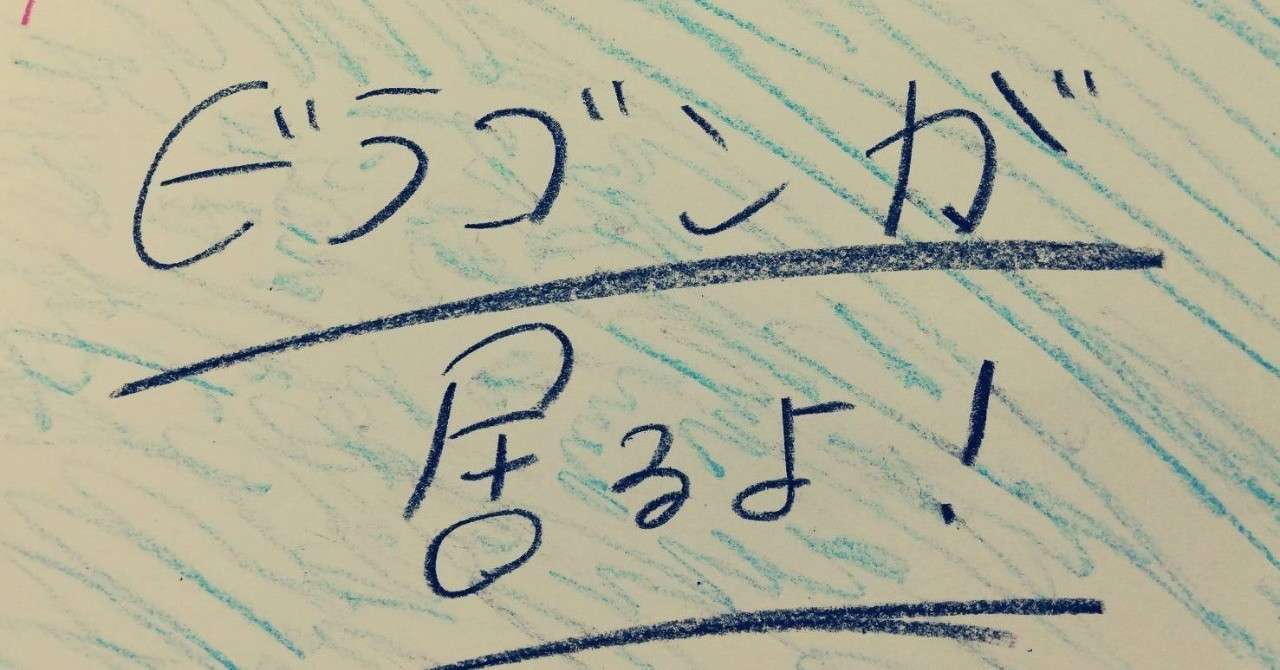 ビラゴンが
居るよ!